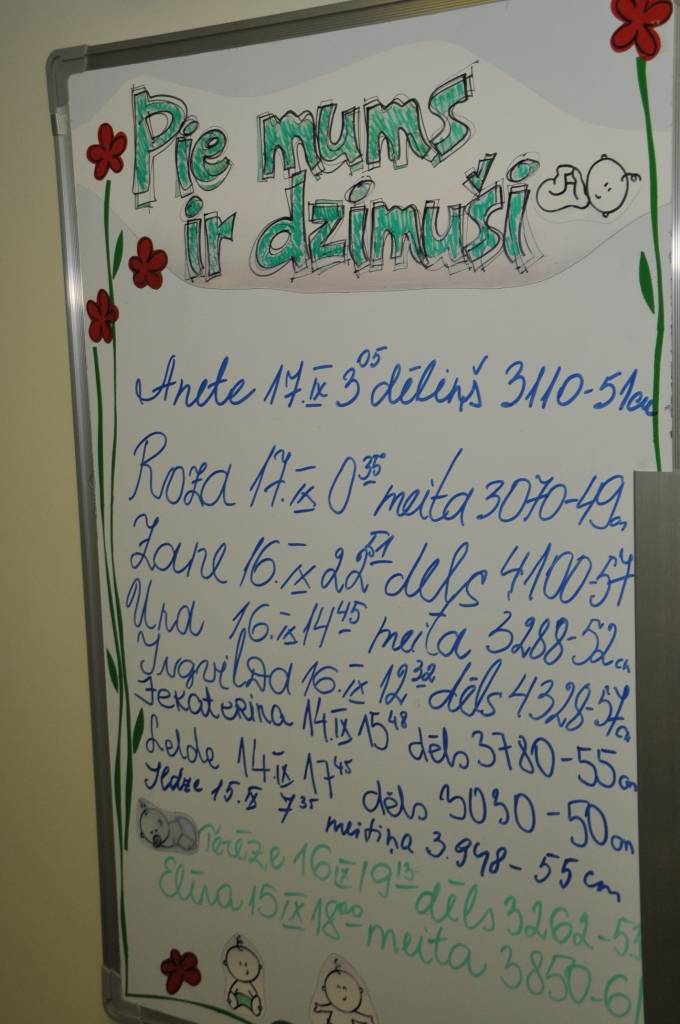 Pie mums
ir dzimuši
Anete 17.IX 3 05 dēliņš 3110-51cm
Roza 17.IX 0 35 meita 3070-49cm
Zane 16.IX 22 51 dēls 4100-57
Una 16.IX 14 45 meita 3288-52cm
Ingvilda 16.IX 12 32 dēls 4328-57cm
Jekaterina 14.IX 15 48 dēls 3780-55cm
Lelde 14.IX 17 45 dēls 3030-50cm
Ildze 15.IX 7 35 meitiņa 3.948-55cm
Terēze 16 IX 19 13 dēls 3262-53
Elīna 15 IX 18 00 meita 3850-61